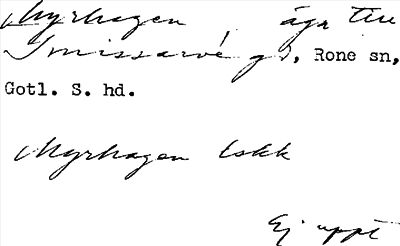 Myrhagen, äga till
Smissarve gd, Rone sn,
Gotl. S. hd.
Myrhagen Lskk
Ej uppt